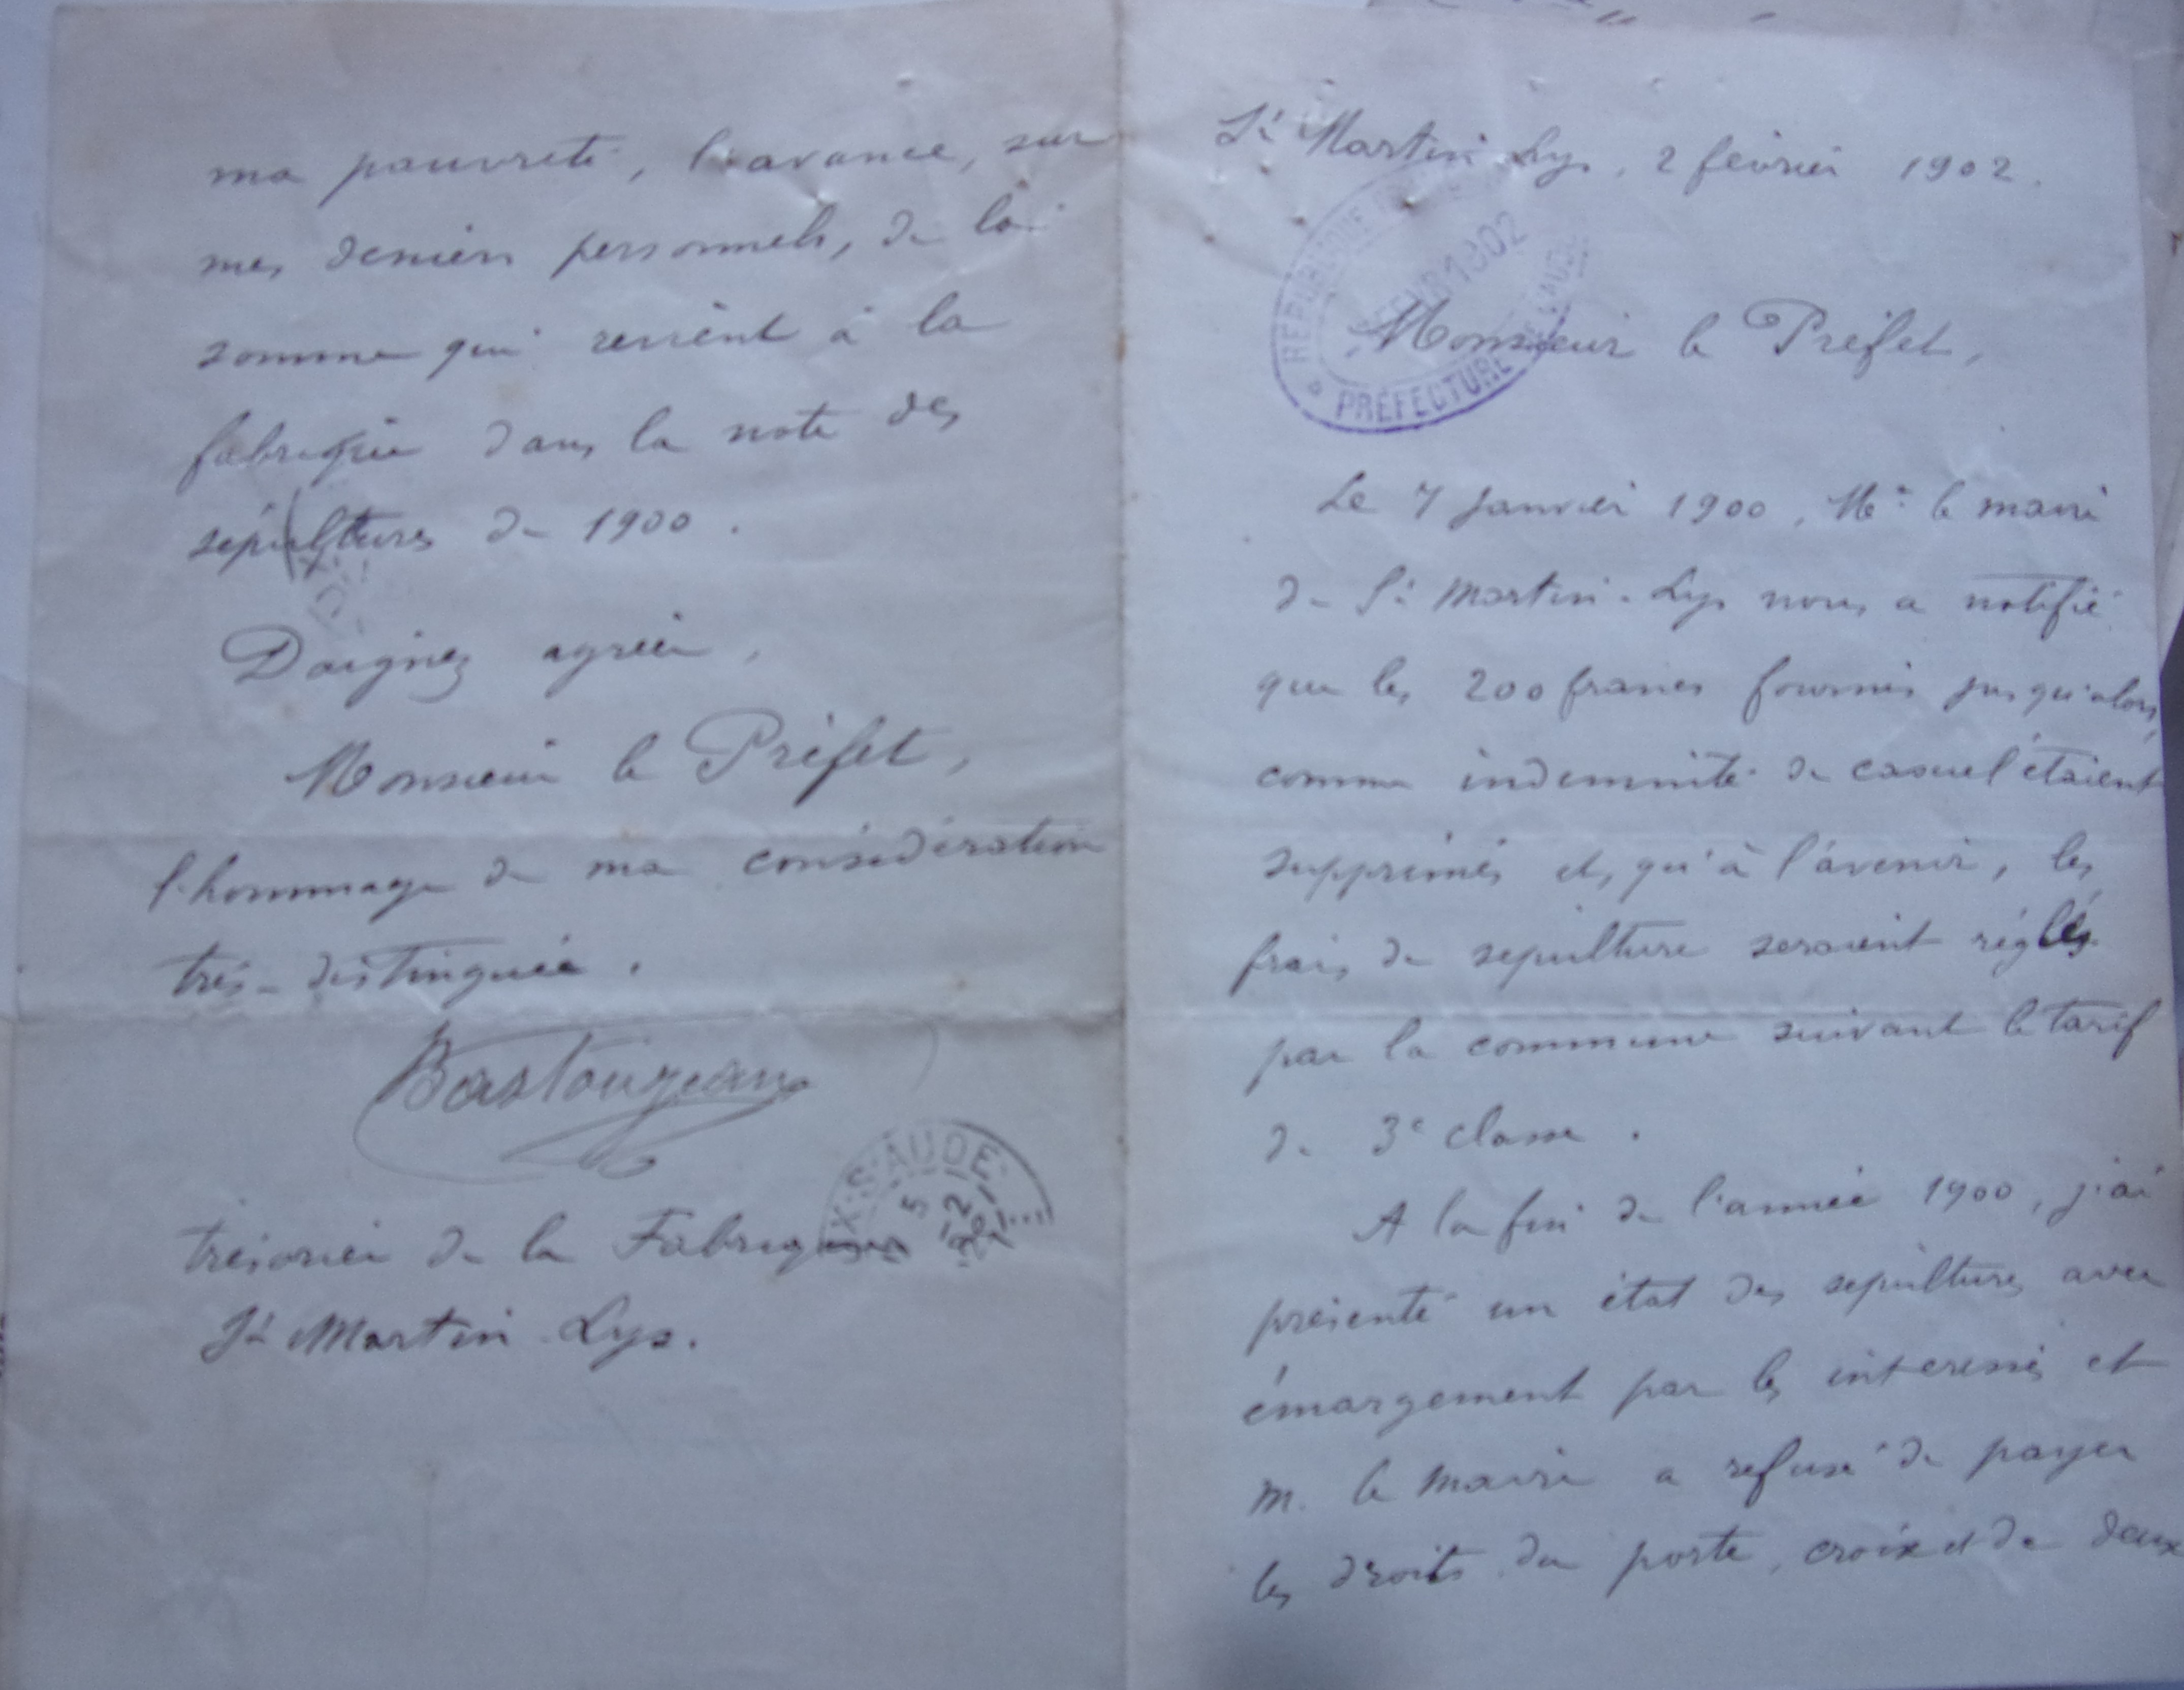 St Martin Lys, 2 février 1902.
Monsieur le Préfet,
Le 7 Janvier 1900, Mr le maire
de St Martin-Lys nous a notifié
que les 200 francs fournis jusqu'alors,
comme indemnité de casuel étaient
supprimés et, qu'à l'avenir, les
frais de sépulture seraient réglés
par la commune suivant le tarif
de 3e classe.
A la fin de l'année 1900, j'ai
présenté un état des sépultures avec
émargement par les interessés et
M. le Maire a refusé de payer
les droits du porte, croix et de deux
ma pauvreté, l'avance, sur
mes deniers personnels, de la
somme qui revient à la
fabrique dans la note des
sépultures de 1900.
Daignez agréer,
Monsieur le Préfet,
l'hommage de ma considération
très-distinguée.
Bastouzeau
trésorier de la Fabrique
St Martin Lys.
RÉPUBLIQUE
FEVR 1902
PRÉFECTURE DE L'AUDE
X-S-AUDE
5
2